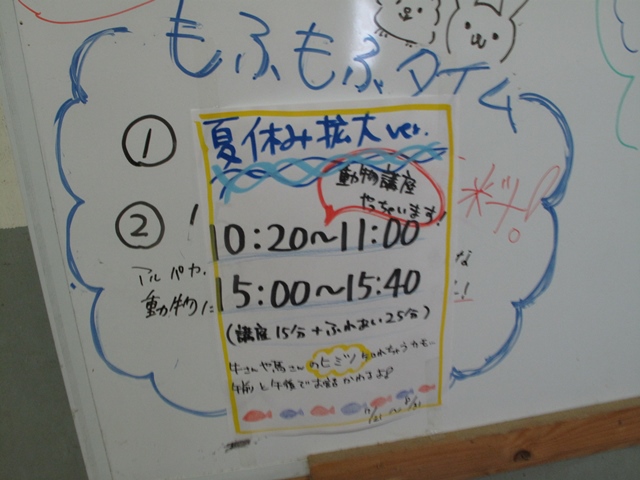 もふもふタイム
夏休み拡大ver.
動物講座
やっちゃいます!
①
②
10:20〜11:00
アルパカ、
な
15:00〜15:40
動物に
(講座15分+ふれあい25分)
牛さんや馬さんのヒミツ
午前と午後でお題かわるよ♪